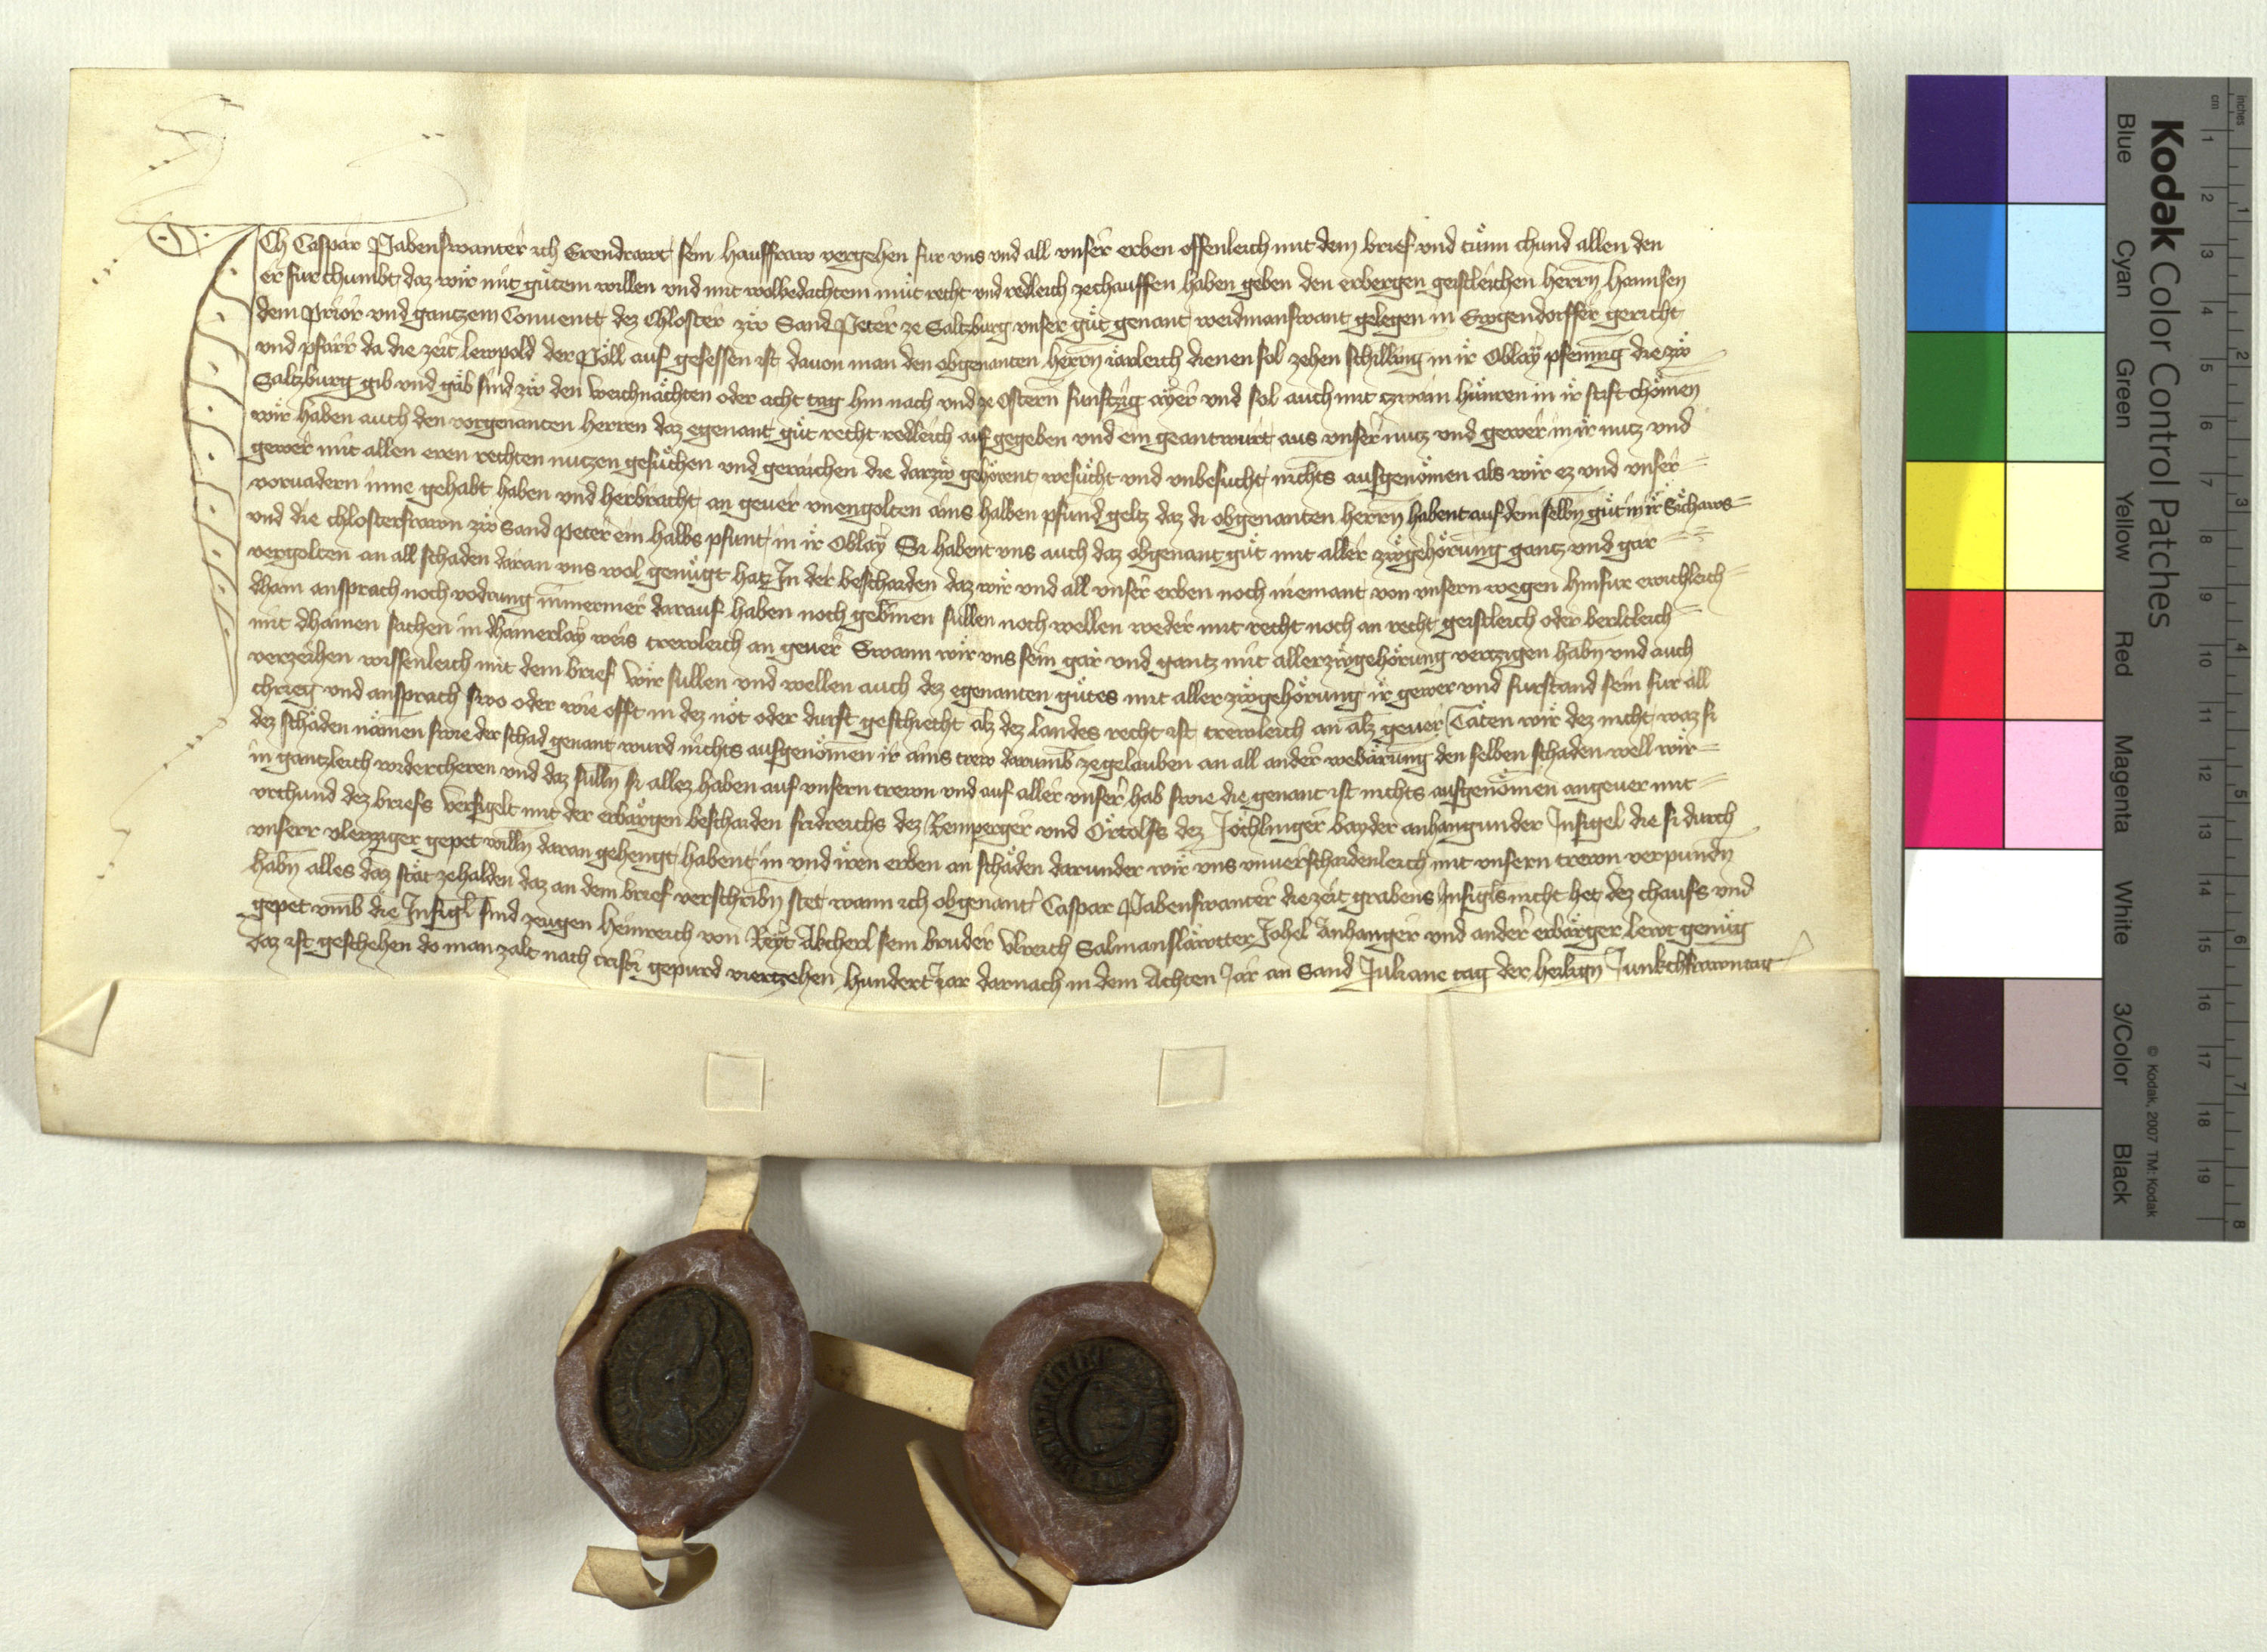 Ich Caspar Pabenswanter ich Gerdrawt sein hausfraw vergehen fur uns und all unser erben offenleich mit dem brief und tuͤnn chund allen den
er fur chumbt daz wir mit guͤtem willen und mit wolbedachtem muͤt recht und redleich zechauffen haben geben den erbergen geistleichen herren hannsen
dem Prior und gantzem Conventt dez Chloster zw Sand Peter ze Saltzburg unser guͤt genant weidmanswant gelegen in Ewgendorffer gericht
und pfarr da die zeit lewpold der Poͤll auf gesessen ist davon man den obgenanten herrn iaͤrleich dienen sol zehen schilling in ir Oblay pfenning die zw
Saltzburg gib und gaͤb sind zw den Weichnaͤchten oder acht tag hin nach und ze Ostern funftzig ayer und sol auch mit zwain huͤnren in ir stift choͤmen
wir haben auch den vorgenanten herren daz egenant guͤt recht redleich auf gegeben und ein geantwurt aus unser nutz und gewer in ir nutz und
gewer mit allen eren rechten nutzen gesuͤchen und geruchen die darzw gehoͤrent wesuͤcht und unbesucht nichts ausgenomen als wir ez und unser
vorvadern inne gehabt haben und herbracht an gever unengolten ains halben pfund geltz daz di obgenanten herrn habent auf dem selbn guͤt in ir Sichaws
und die chlosterfrawn zw Sand Peter ein halbs pfunt in ir Oblay Si habent uns auch daz obgenant guͤt mit aller zwgehoͤrung gantz und gar
vergolten an all schaden daran uns wol genuͤgt hat In der beschaiden daz wir und all unser erben noch niemant von unsern wegen hinfur ewichleich
dhain ansprach noch vodrung nimmermer darauf haben noch gebinen sullen noch wellen weder mit recht noch an recht geistleich oder werltleich
mit dhainen sachen in dhainerlay weis trewleich an gever Swann wir uns sein gar und gantz mit aller zwgehoͤrung vertzigen habn und auch
verzeihen wissenleich mit dem brief Wir sullen und wellen auch dez egenanten guͤtes mit aller zwgehoͤrung ir gewer und furstand sein fur all
chrieg und ansprach swo oder wie offt in dez noͤt oder durft geschiecht alz dez landes recht ist trewleich an alz gever Taͤten wir dez nicht waz si
dez schaden naͤmen swie der schad genant wurd nichts ausgenomen ir ains trew darumb zegelauben an all ander webaͤrung den selben schaden well wir
in gantzleich widercheren und daz sulln si allez haben auf unsern trewn und auf aller unser hab swie die genant ist nichts ausgenomen angever mit
urchund dez briefs Versigelt mit der erbaͤrgen beschaiden fridreichs dez Remperger und Ortolfs dez Joͤchlinger bayder anhangunder Insigel die si durch
unserr vlenziger gepet willn daran gehengt habent in und iren erben an schaͤden darunder wir uns unverschaidenleich mit unsern trewn verpundn
habn alles daz staͤt zehalden daz an dem brief verschribn stet wann ich obgenant Caspar Pabenswanter die zeit grabens Insigls nicht het dez chaufs und
gepet umb die Insigl sind zeugen Heinreich von Reyt Akcherl sein bruder Ulreich Salmanslaͤwtter Johel Anhanger und ander erbaͤrger lewt genuͤg
daz ist geschehen do man zalt nach cristi gepurd viertzehen hundert Jar darnach in dem Achten Jar an Sand Juliane tag der heilign Junkchfrawn

Kodak Color Control Patches
Blue Cyan Green Yellow Red Magenta White 3/Color Black
© Kodak, 2007 TM: Kodak
inches 1 2 3 4 5 6 7 8
cm 1 2 3 4 5 6 7 8 9 10 11 12 13 14 15 16 17 18 19